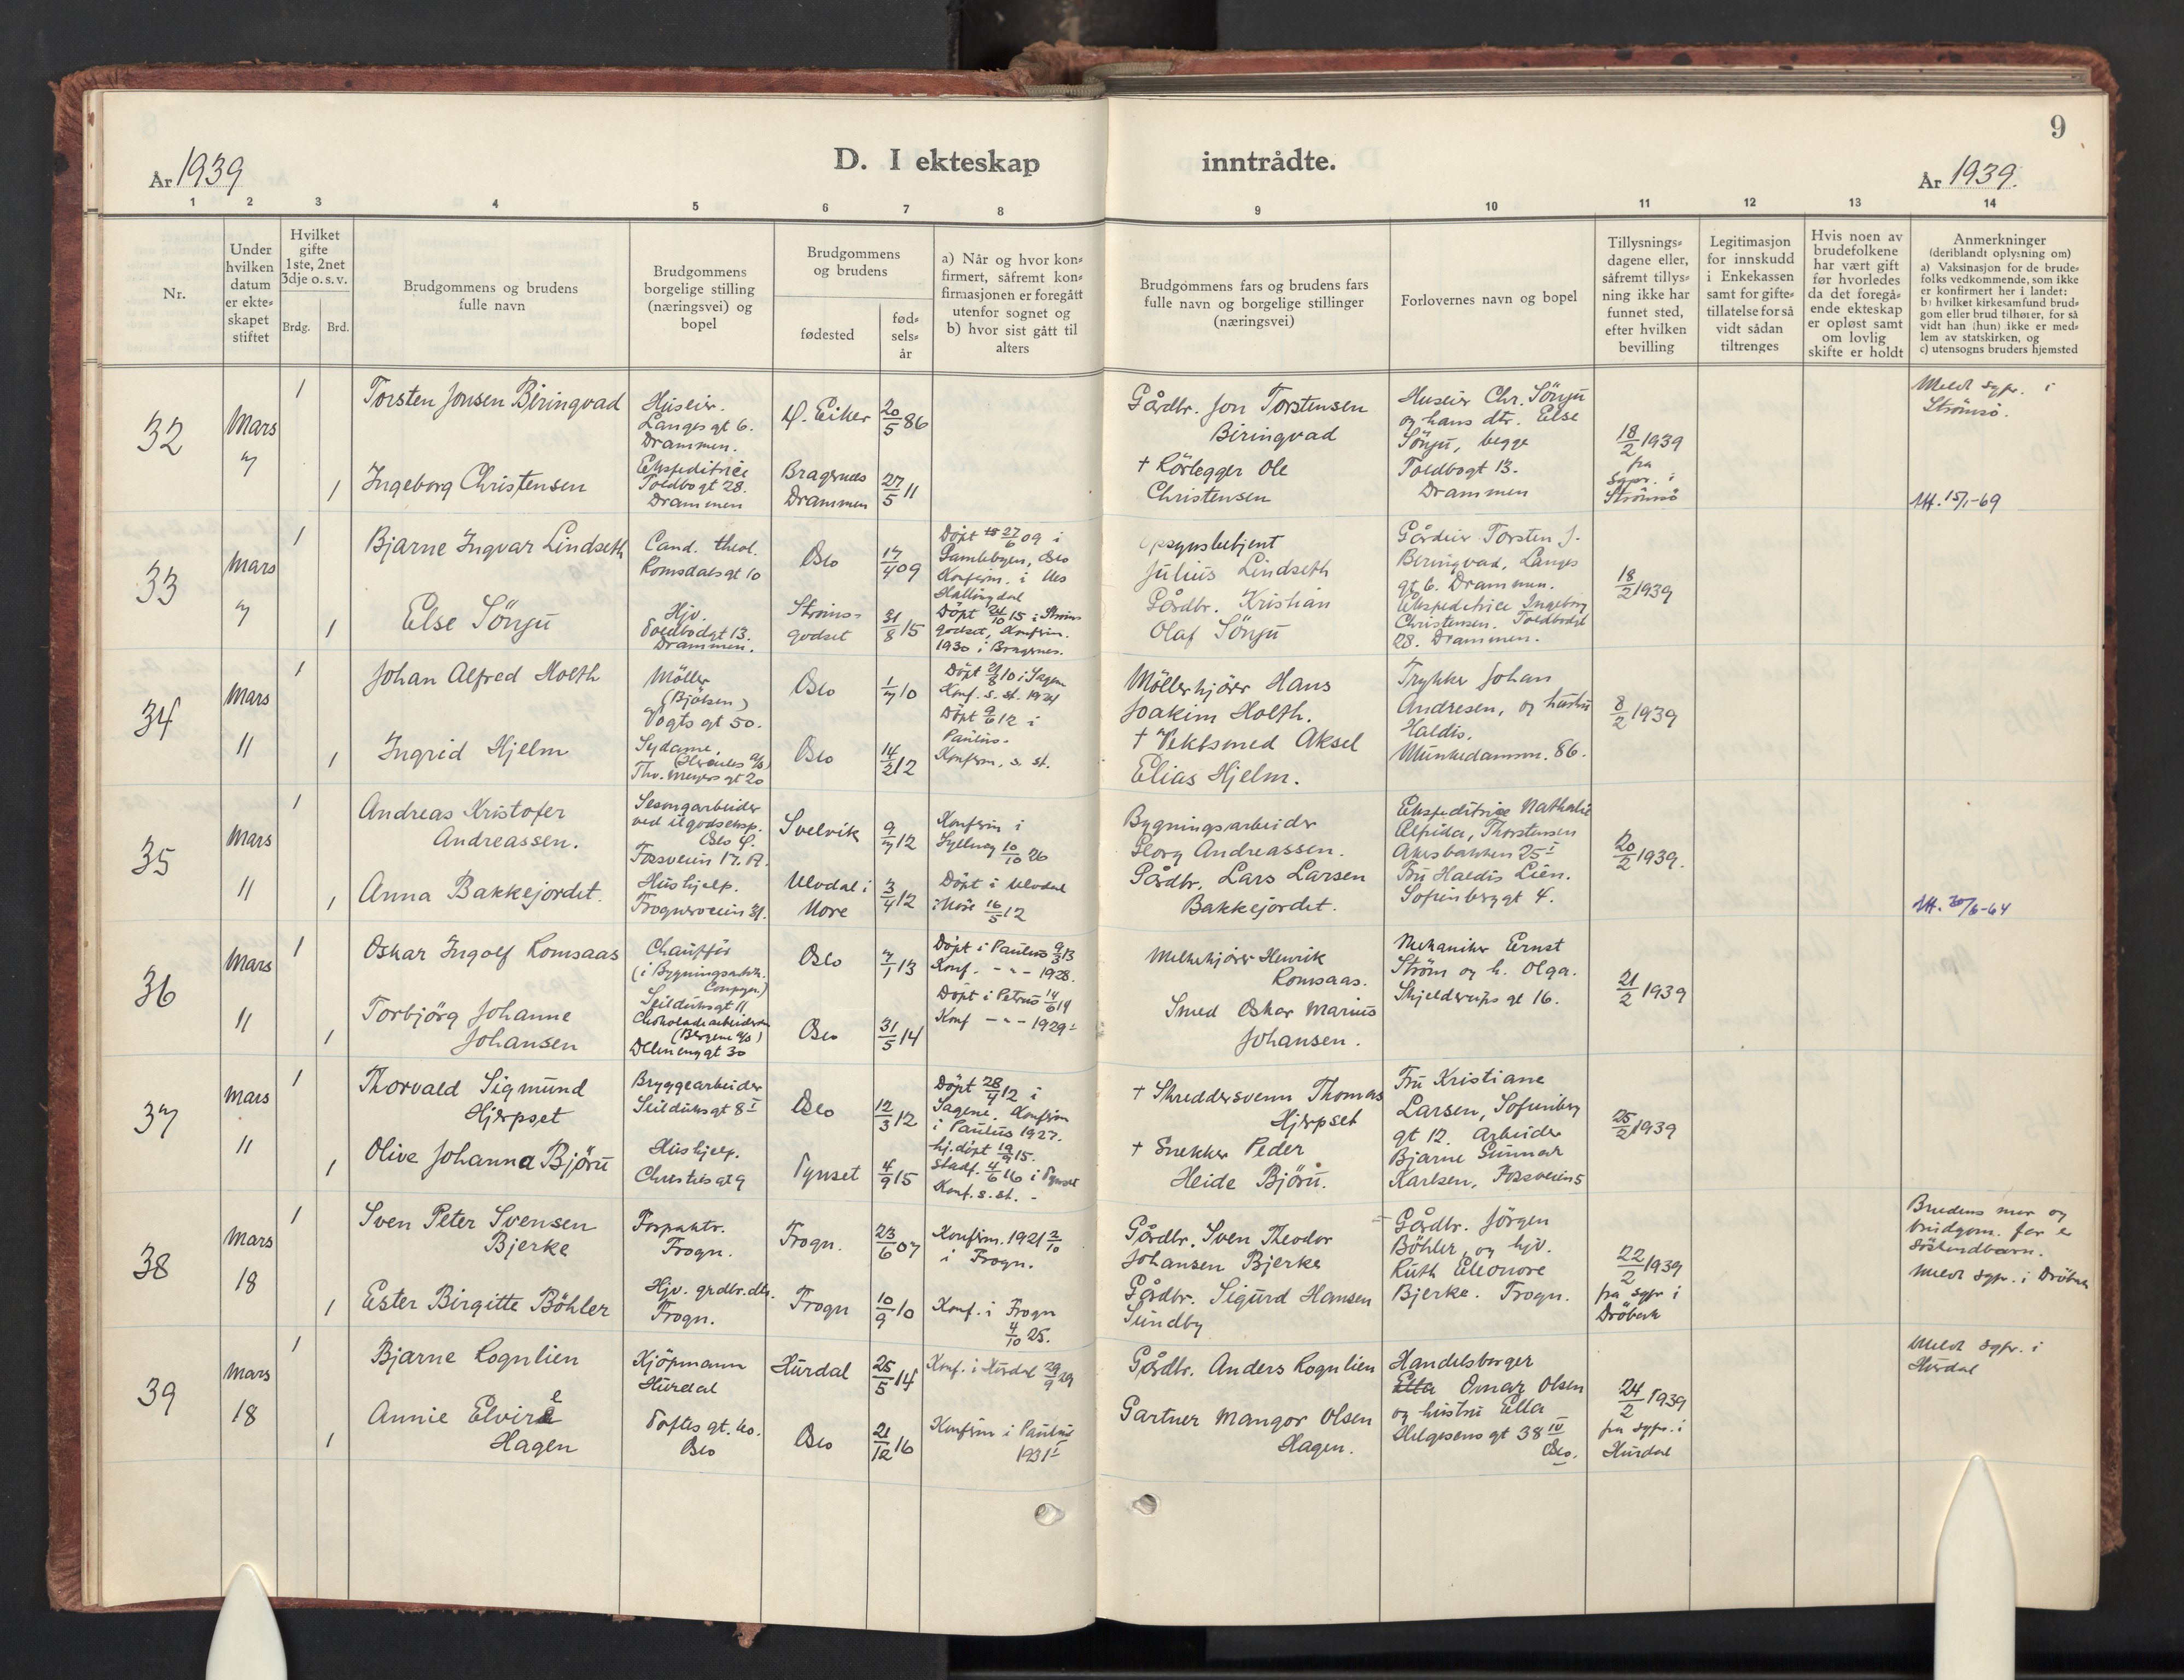 9
D. I ekteskap inntrådte.
År 1939
År 1939.
1 2 3 4 5 6 7 8 9 10 11 12 13 14
Nr.
Under hvilken datum er ekteskapet stiftet
Hvilket gifte 1ste, 2net 3dje o.s.v.
Brdg. Brd.
Brudgommens og brudens fulle navn
Brudgommens borgelige stilling (næringsvei) og bopel
Brudgommens og brudens
fødested
fødselsår
a) Når og hvor konfirmert, såfremt konfirmasjonen er foregått utenfor sognet og b) hvor sist gått til alters
Brudgommens fars og brudens fars fulle navn og borgelige stillinger (næringsvei)
Forlovernes navn og bopel
Tillysningsdagene eller, såfremt tillysning ikke har funnet sted, efter hvilken bevilling
Legitimasjon for innskudd i Enkekassen samt for giftetillatelse for så vidt sådan tiltrenges
Hvis noen av brudefolkene har vært gift før hvorledes da det foregående ekteskap er opløst samt om lovlig skifte er holdt
Anmerkninger (deriblandt oplysning om) a) Vaksinasjon for de brudefolks vedkommende, som ikke er konfirmert her i landet; b) hvilket kirkesamfund brudgom eller brud tilhører, for så vidt han (hun) ikke er medlem av statskirken, og c) utensogns bruders hjemsted
32
Mars
7
1
Torsten Jonsen Biringvad
Huseier.
Langesgt 6.
Drammen.
Ø. Eiker
20/5 86
Gårdbr. Jon Torstensen
Biringvad
Huseier Chr. Sönju
og hans dtr. Else
Sönju, begge
Toldbogt 13.
Drammen
18/2 1939
fra
Sgpr. i
Strömsö
Meldt sgpr. i
Strömsö.
1
Ingeborg Christensen
Ekspeditrice
Toldbogt 28.
Drammen
Bragernes
Drammen
27/5 11
+ Rörlegger Ole
Christensen
Utt. 15/1-69
33
Mars
7
1
Bjarne Ingvar Lindseth
Cand. theol.
Romsdalsgt 10
Oslo
17/4 09
Döpt 27/6 09 i
Gamlebyen, Oslo
Konfirm. i Nes
Hallingdal
opsynsbetjent
Julius Lindseth
Gårdeier Torsten J.
Beringvad, Langes
gt 6. Drammen.
Ekspeditrice Ingeborg
Christensen. Toldbodgt
28. Drammen.
18/2 1939
1
Else Sönju
Hjv.
Toldbodgt 13.
Drammen.
Ströms-
godset
31/8 15
Döpt 24/10 15 i Ströms
godset, Konfirm.
1930 i Bragernes.
Gårdbr. Kristian
Olaf Sönju
34
Mars
11
1
Johan Alfred Holth
Möller
(Bjölsen)
Vogts gt 50.
Oslo
1/7 10
Döpt 21/8 10 i Sagene
Konf. s. st. 1924
Möllerkjörer Hans
Joakim Holth.
Trykker Johan
Andresen, og hustru
Haldis.
Munkedamsv. 86.
8/2 1939
1
Ingrid Hjelm
Sydame.
(Hercules A/S)
Thv. Meyers gt 20
Oslo
14/2 12
Döpt 9/6 12 i
Paulus.
Konfirm. s. st.
+ Vektsmed Aksel
Elias Hjelm.
35
Mars
11
1
Andreas Kristofer
Andreassen.
Sesongarbeider
ved ilgodseksp.
Oslo Ö.
Fossveien 17. A.
Svelvik
9/7 12
Konfirm i
10/10 26
Bygningsarbeider
Georg Andreassen.
Ekspeditrice Nathalie
Alfrida, Thorstensen
Akersbakken 25 I
Fru Haldis Lien.
Sofienberggt 4.
20/2 1939.
1
Anna Bakkejordet.
Hushjelp.
Frognerveien 31.
Ulvdal i
More
3/4 12
Döpt i Ulvdal
i More 16/5 12
Gårdbr. Lars Larsen
Bakkejordet.
Utt. 30/6-64
36
Mars
11
1
Oskar Ingolf Romsaas
Chaufför
(i Bygningsartik.
Compgn.)
Seilduksgt 11
Oslo
7/1 13
Döpt i Paulus 9/3 13
Konf. - " - 1928.
Melkekjörer Henrik
Romsaas.
Mekaniker Ernst
Ström og h. Olga.
Skjelderups gt 16.
21/2 1939
1
Torbjörg Johanne
Johansen
Chokoladearbeiderske
(Bergene A/S)
Dælenenggt 30
Oslo
31/5 14
Döpt i Petrus 14/6 14
Konf - " - 1929.
Smed Oskar Marius
Johansen.
37
Mars
11
1
Thorvald Sigmund
Hjerpset
Bryggearbeider
Seilduksgt 8 I
Oslo
12/3 12
Döpt 28/4 12 i
Sagene. Konfirm
i Paulus 1927.
+ Skreddersvenn Thomas
Hjerpset
Fru Kristiane
Larsen, Sofienberg
gt 12. Arbeider
Bjarne Gunnar
Karlsen, Fossveien 5
25/2 1939
1
Olive Johanna Björu
Hushjelp.
Christiesgt 9
Tynset
4/9 15
hj.döpt 19/9 15.
Stadf. 4/6 16 i Tynset
Konf. s. st. -
+ Snekker Peder
Heide Björu.
38
Mars
18
1
Sven Peter Svensen
Bjerke
Forpaktr.
Frogn.
Frogn.
23/6 07
Konfirm. 1921 2/10
i Frogn.
Gårdbr. Sven Theodor
Johansen Bjerke
Gårdbr. Jörgen
Böhler, og hjv.
Ruth Eleonore
Bjerke. Frogn.
22/2 1939
fra sgpr i
Dröbak
Brudens mor og
brudgom. far er
söskendbarn.
Meldt sgpr. i Dröbak
1
Ester Birgitte Böhler
Hjv. grdbr.dtr.
Frogn.
Frogn
10/9 10
Konf. i Frogn
4/10 25.
Gårdbr. Sigurd Hansen
Sundby
39
Mars
18
1
Bjarne Rognlien
Kjöpmann
Hurdal
Hurdal
25/5 14
Konf. i Hurdal 29/9 29
Gårdbr. Anders Rognlien
Handelsborger
Ella Omar Olsen
og hustru Ella
Helgesens gt 38 IV
Oslo.
24/2 1939
fra sgpr. i
Hurdal
Meldt sgpr. i
Hurdal
1
Annie Elvire
Hagen
Toftes gt. 60.
Oslo
Oslo
21/12 16
Konfirm i Paulus
1931
Gartner Mangor Olsen
Hagen.